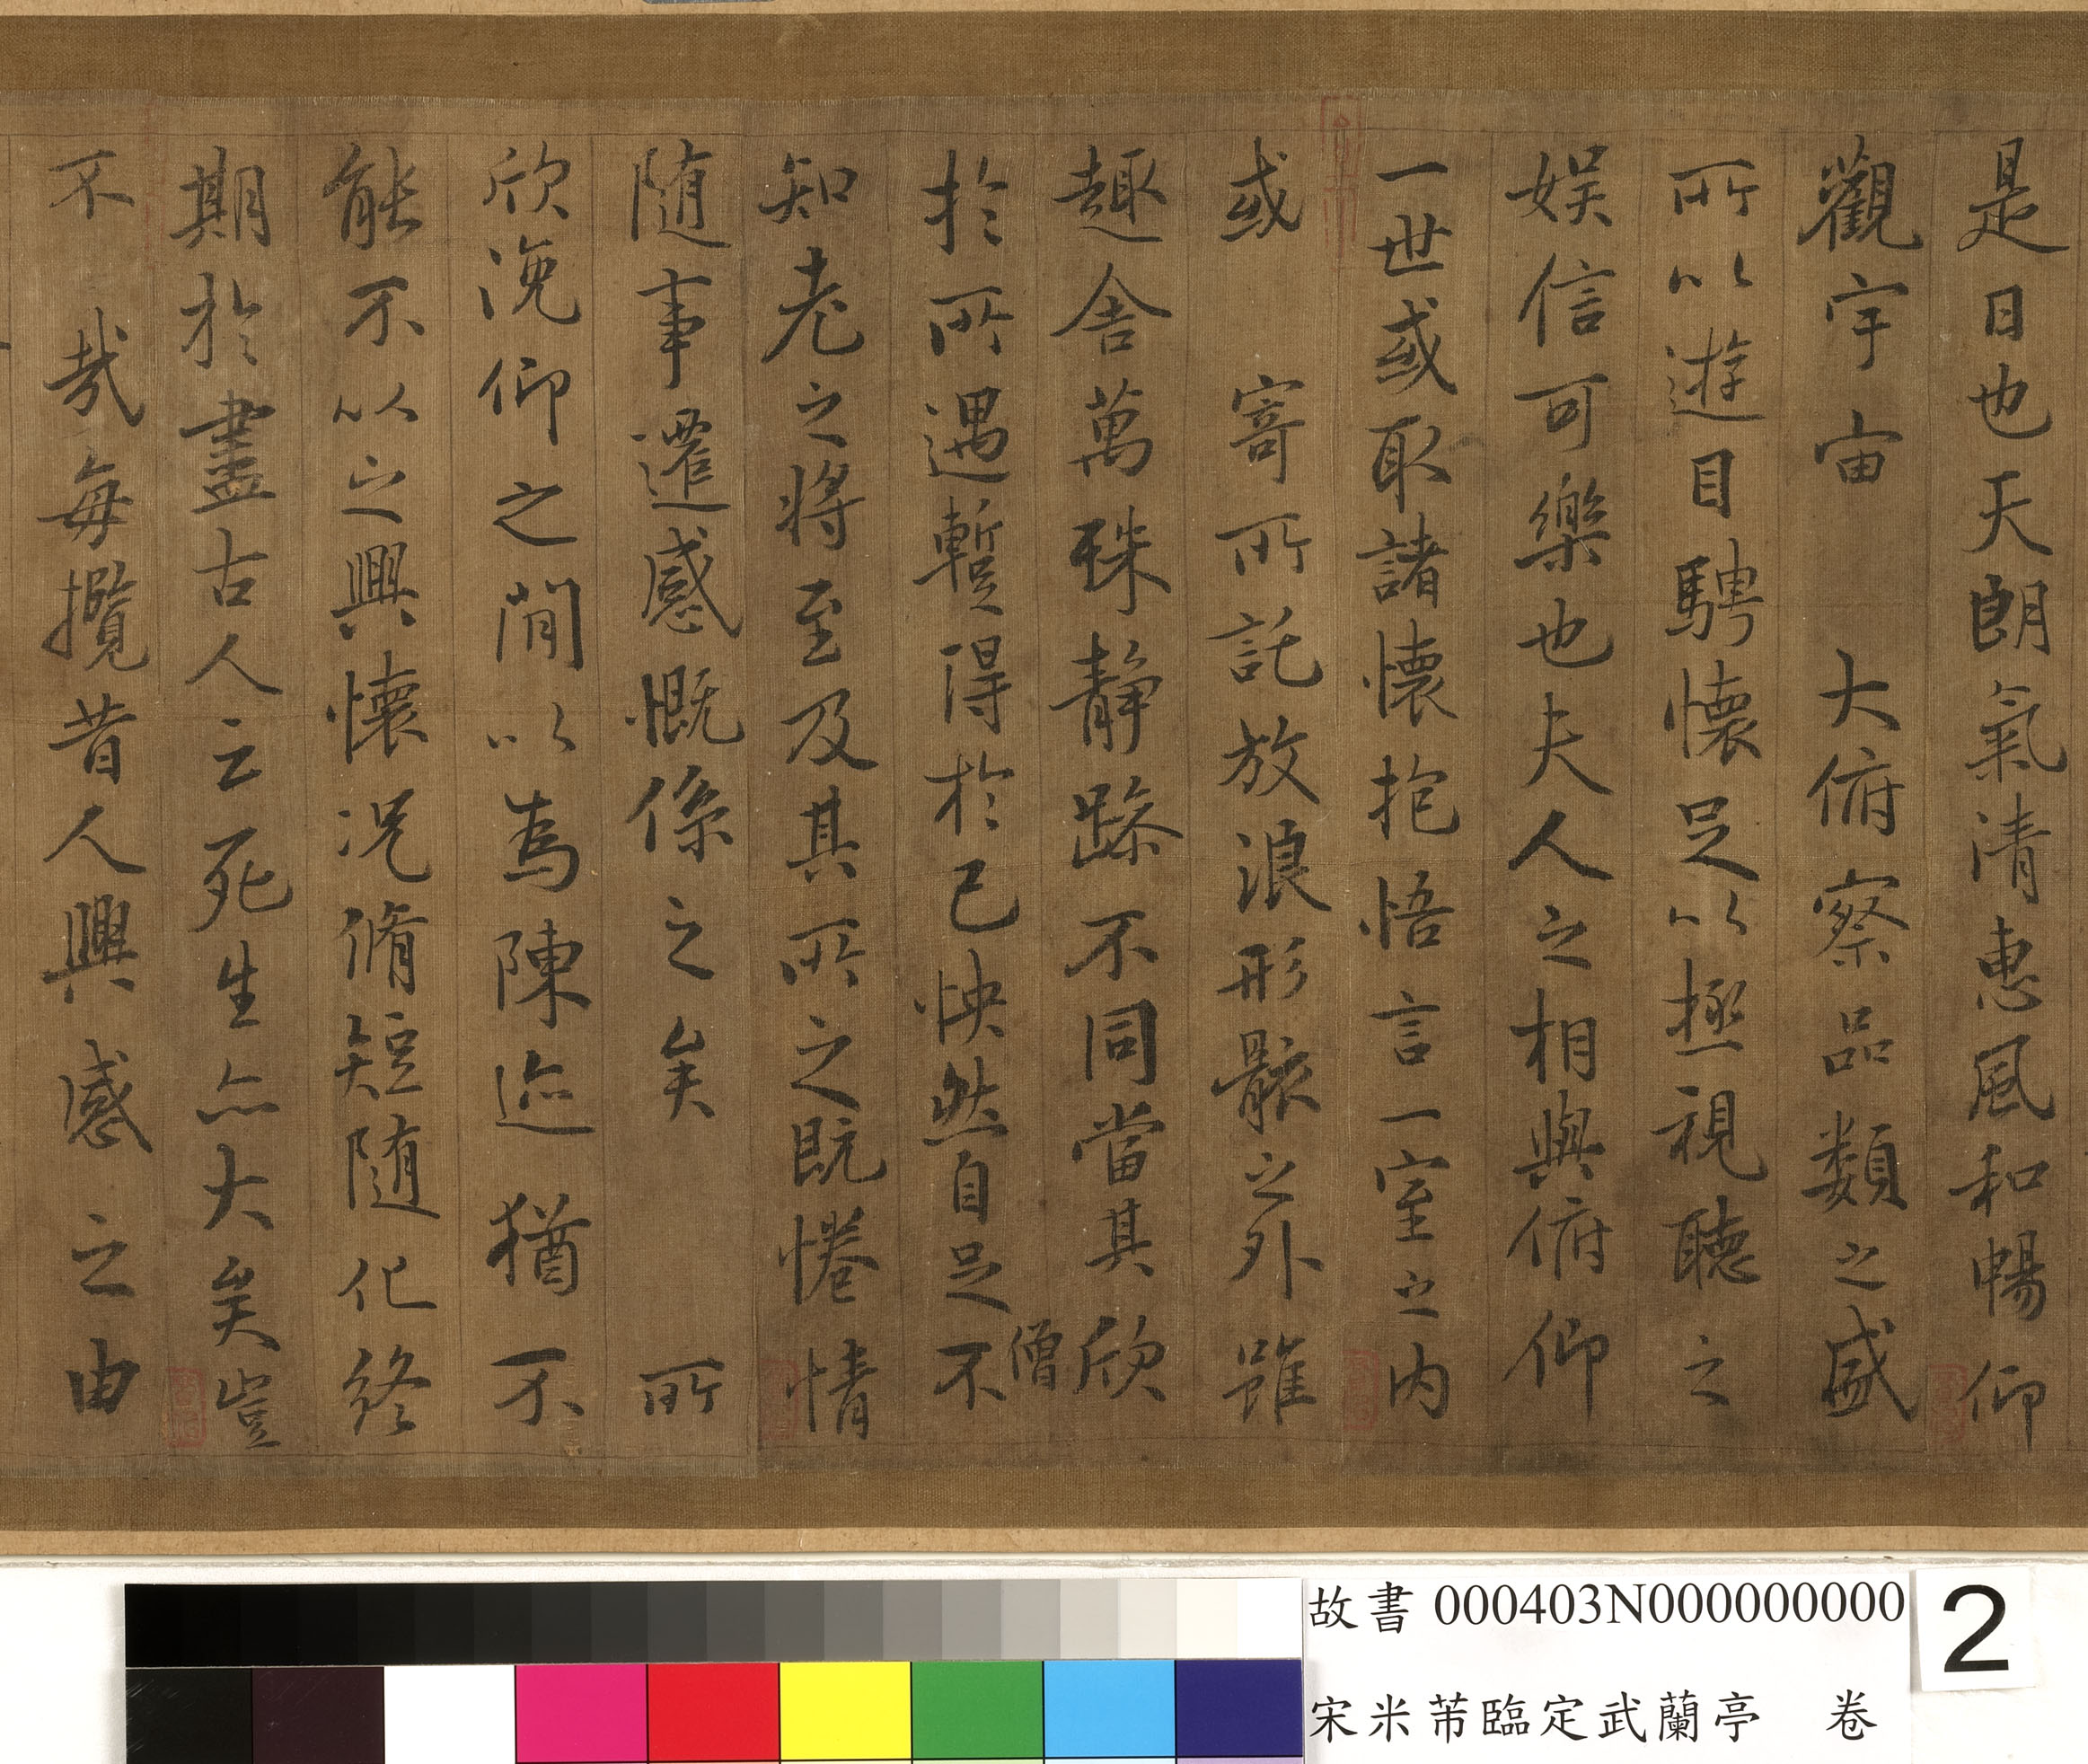 是日也天朗氣清惠風和暢仰
觀宇宙大俯察品類之盛
所以遊目騁懷足以極視聽之
娛信可樂也夫人之相與俯仰
一世或取諸懷抱悟言一室之內
或寄所託放浪形骸之外雖
趣舍萬殊靜躁不同當其欣
僧
於所遇蹔得於己怏然自足不
知老之將至及其所之既惓情
隨事遷感慨係之矣所
欣俛仰之閒以為陳迹猶不
能不以之興懷況脩短隨化終
期於盡古人云死生亦大矣豈
不哉每攬昔人興感之由
故書 000403N000000000
2
宋米芾臨定武蘭亭 卷